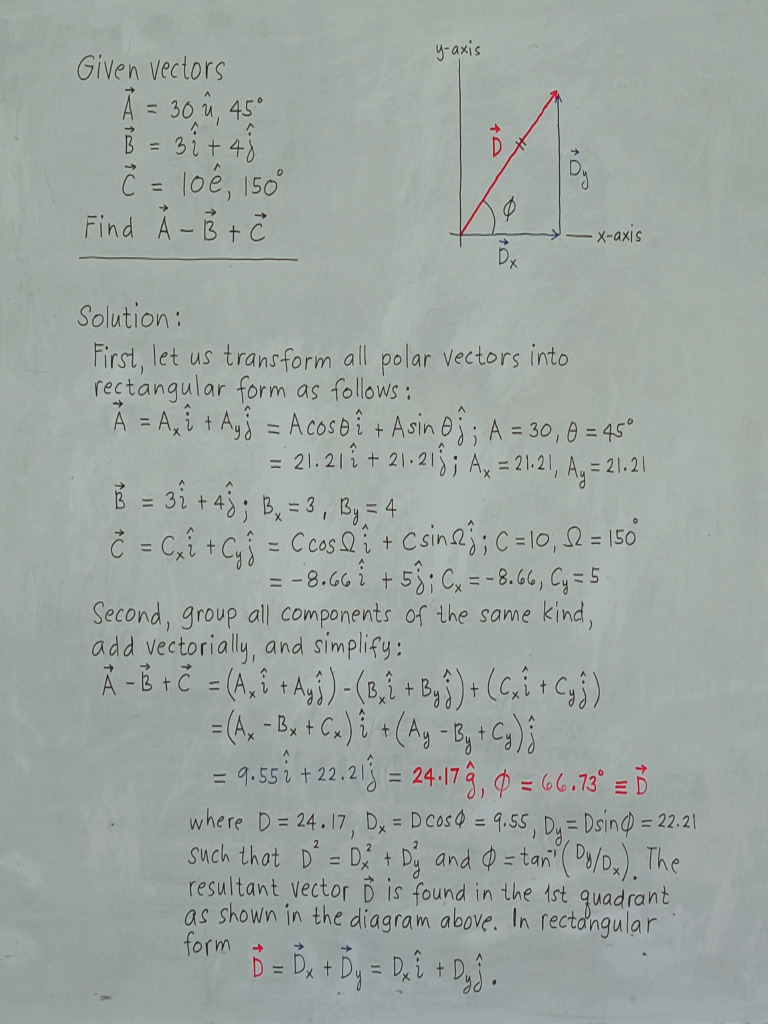 Given vectors
A⃗ = 30 û, 45°
B⃗ = 3î + 4ĵ
C⃗ = 10ê, 150°
Find A⃗ − B⃗ + C⃗
y-axis
D⃗
D⃗y
ϕ
x-axis
D⃗x
Solution:
First, let us transform all polar vectors into
rectangular form as follows:
A⃗ = Axî + Ayĵ = Acosθî + Asinθĵ; A = 30, θ = 45°
= 21.21î + 21.21ĵ; Ax = 21.21, Ay = 21.21
B⃗ = 3î + 4ĵ; Bx = 3, By = 4
C⃗ = Cxî + Cyĵ = CcosΩî + CsinΩĵ; C = 10, Ω = 150°
= −8.66î + 5ĵ; Cx = −8.66, Cy = 5
Second, group all components of the same kind,
add vectorially, and simplify:
A⃗ − B⃗ + C⃗ = (Axî + Ayĵ) − (Bxî + Byĵ) + (Cxî + Cyĵ)
= (Ax − Bx + Cx)î + (Ay − By + Cy)ĵ
= 9.55î + 22.21ĵ = 24.17ĝ, ϕ = 66.73° ≡ D⃗
where D = 24.17, Dx = Dcosϕ = 9.55, Dy = Dsinϕ = 22.21
such that D² = Dx² + Dy² and ϕ = tan⁻¹(Dy/Dx). The
resultant vector D⃗ is found in the 1st quadrant
as shown in the diagram above. In rectangular
form
D⃗ = D⃗x + D⃗y = Dxî + Dyĵ.